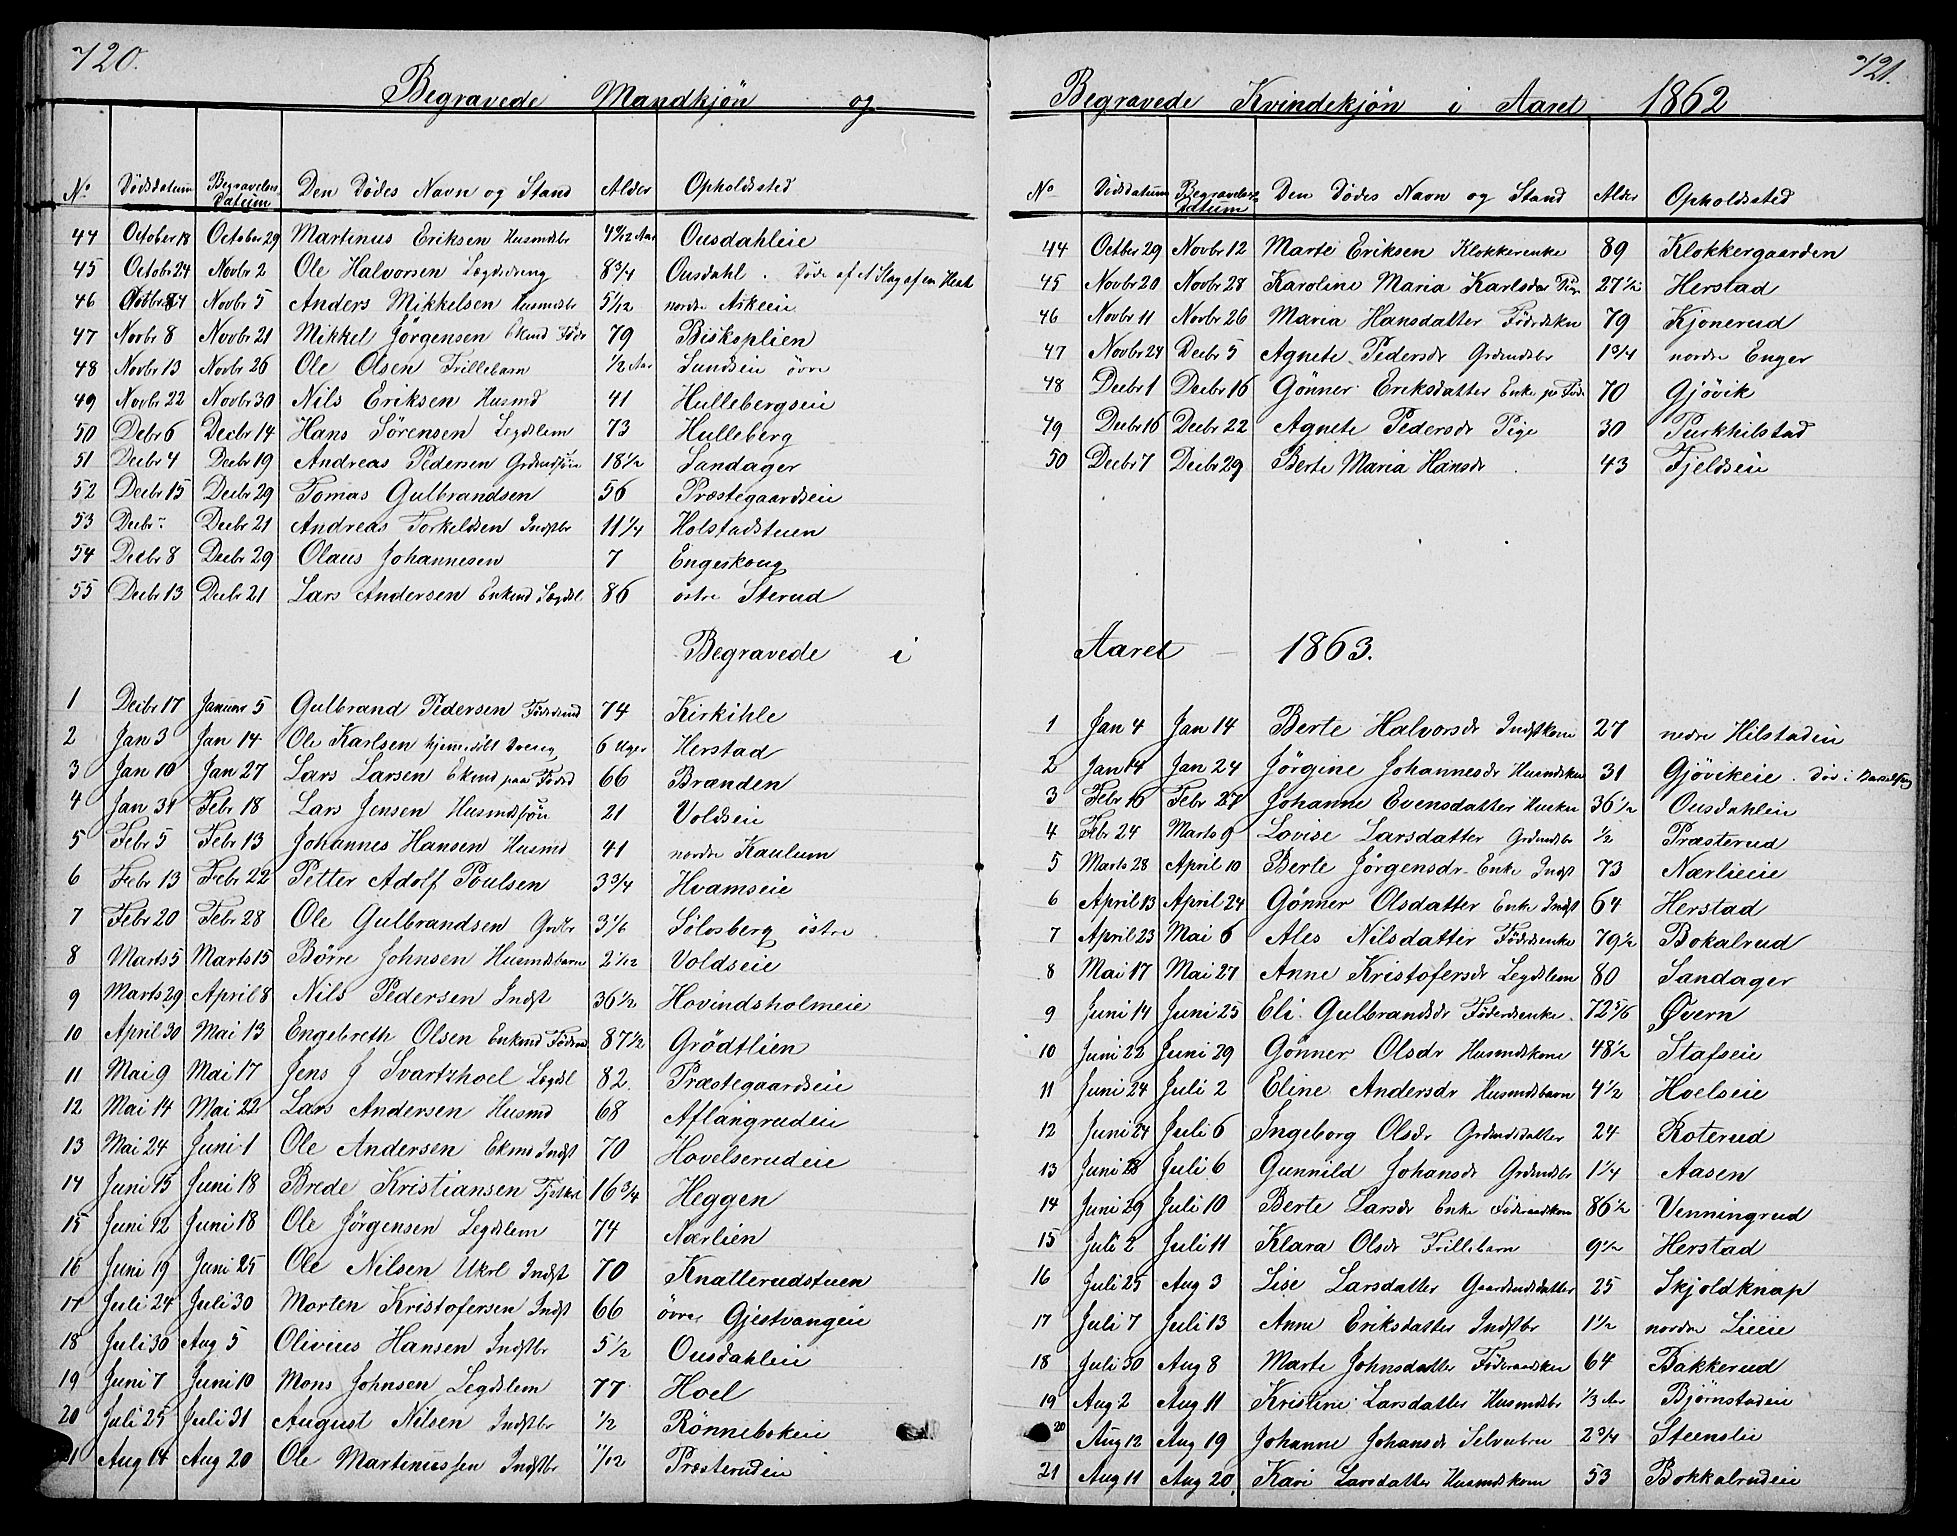 720.
Begravede Mandkjön og
No Dödsdatum Begravelses Datum Den Dödes Navn og Stand Alder Opholdssted
44 October 18 October 29 Martinus Eriksen Husmdsbr 4 9/12 Aar Ousdahleie
45 Octobr 24 Novbr 2 Ole Halvorsen Lægdsdreng 8 3/4 Ousdahl. Döde af et Slag af en Hest
46 Octbr 24 Novbr 5 Anders Mikkelsen Husmdsbr 5 1/12 nordre Askeeie
47 Novbr 8 Novbr 21 Mikkel Jörgensen Ekmd Födr 79 Biskoplien
48 Novbr 13 Novbr 26 Ole Olsen Frillebarn 1/2 Aar Sundseie övre
49 Novbr 22 Novbr 30 Nils Eriksen Husmd 41 Hullebergseie
50 Debr 6 Decbr 14 Hans Sörensen Legdslem 73 Hulleberg
51 Decbr 4 Decbr 19 Andreas Pedersen Grdmdsön 18 1/2 Sandager
52 Decbr 15 Decbr 29 Tomas Gulbrandsen 56 Præstegaardseie
53 Decbr - Decbr 21 Andreas Torkeldsen Indstbr 11 1/4 Holstadstuen
54 Decbr 8 Decbr 29 Olaus Johannesen 7 Engeskoug
55 Decbr 13 Decbr 21 Lars Andersen Enkmd Lægdsl 86 östre Sterud
Begravede i
1 Decbr 17 Januar 5 Gulbrand Pedersen Föderdmd 74 Kirkihle
2 Jan 3 Jan 14 Ole Karlsen hjemmedöbt Dreng 6 Uger Herstad
3 Jan 10 Jan 27 Lars Larsen Ekmd paa Födrd 66 Brænden
4 Jan 31 Febr 18 Lars Jensen Husmdsön 21 Voldseie
5 Febr 5 Febr 13 Johannes Hansen Husmd 41 nordre Kaulum
6 Febr 13 Febr 22 Petter Adolf Poulsen 3 3/4 Hvamseie
7 Febr 20 Febr 28 Ole Gulbrandsen Grdbr 3 1/6 Sölosberg östre
8 Marts 5 Marts 15 Börre Johnsen Husmdsbarn 2 1/12 Voldseie
9 Marts 29 April 8 Nils Pedersen Indst 36 1/2 Hovindsholmeie
10 April 30 Mai 13 Engebreth Olsen Enkmd Föderd 87 1/2 Grödtlien
11 Mai 9 Mai 17 Jens J Svartzhoel Lægdsl 82. Præstegaardseie
12 Mai 14 Mai 22 Lars Andersen Husmd 68 Aflangrudeie
13 Mai 24 Juni 1 Ole Andersen Ekmd Indst 70 Hovelserudeie
14 Juni 15 Juni 18 Brede Kristiansen Tjstkrl 16 3/4 Heggen
15 Juni 12 Juni 18 Ole Jörgensen Legdslem 74 Nærlien
16 Juni 19 Juni 25 Ole Nilsen Ukrl Indst 70 Knatterudstuen
17 Juli 24 Juli 30 Morten Kristofersen Indst 66 övre Gjestvangeie
18 Juli 30 Aug 5 Olivius Hansen Indstbr 5 1/2 Ousdahleie
19 Juni 7 Juni 10 Mons Johnsen Legdslem 77 Hoel
20 Juli 25 Juli 31 August Nilsen Indstbr 1/2 Rönnebokeie
21 Aug 14 Aug 20 Ole Martinussen Indstbr 11/12 Præsterudeie
721.
Begravede Kvindekjön i Aaret 1862
No Dödsdatum Begravelses Datum Den Dödes Navn og Stand Alder Opholdssted
44 Octber 29 Novbr 12 Marte Eriksen Klokkerenke 89 Klokkergaarden
45 Novbr 20 Novbr 28 Karoline Maria Karlsdr Pige 27 1/2 Herstad
46 Novbr 11 Novbr 26 Maria Hansdatter Födrdskn 79 Kjonerud
47 Novbr 24 Decbr 5 Agnete Pedersdr Grdmdsbr 1 3/4 nordre Enger
48 Decbr 1 Decbr 16 Gönner Eriksdatter Enke pa Födr 70 Gjövik
49 Decbr 16 Decbr 22 Agnete Pedersdr Pige 30 Purkhilstad
50 Decbr 7 Decbr 29 Berte Maria Hansdr 43 Fjeldseie
Aaret - 1863.
1 Jan 4 Jan 14 Berte Halvorsdr Indstkone 27 nedre Hilstadeie
2 Jan 14 Jan 24 Jörgine Johannesdr Husmdskn 31 Gjövikeie. död i Barselseng
3 Febr 16 Febr 27 Johanne Evensdatter Huskn 36 1/2 Ousdahleie
4 Febr 24 Marts 9 Lovise Larsdatter Grdmdsbr 1/2 Præsterud
5 Marts 28 April 10 Berte Jörgensdr Enke Indst 73 Nærlieeie
6 April 13 April 24 Gönner Olsdatter Enke Indst 64 Herstad
7 April 23 Mai 6 Ales Nilsdatter Födrdsenke 79 1/2 Bokalrud
8 Mai 17 Mai 27 Anne Kristofersdr Legdslem 80 Sandager
9 Juni 14 Juni 25 Eli Gulbrandsdr Föderdsenke. 72 5/6 Øvern
10 Juni 22 Juni 29 Gönner Olsdr Husmdskone 48 1/2 Stafseie
11 Juni 24 Juli 2 Eline Andersdr Husmdsbarn 4 1/2 Hoelseie
12 Juni 24 Juli 6 Ingeborg Olsdr Grdmdsdatter 24 Roterud
13 Juni 28 Juli 6 Gunnild Johansdr Grdmdsbr 1 1/4 Aasen
14 Juni 29 Juli 10 Berte Larsdr Enke Föderaadskone 86 1/2 Venningrud
15 Juli 2 Juli 11 Klara Olsdr Frillebarn 9 1/2 Herstad
16 Juli 25 Aug 3 Lise Larsdatter Gaardmdsdatter 25 Skjoldknap
17 Juli 7 Juli 13 Anne Eriksdatter Indstbr 1 1/2 nordre Lieeie
18 Juli 30 Aug 8 Marte Johnsdatter Föderaadskn 64 Bakkerud
19 Aug 2 Aug 11 Kristine Larsdatter Husmdsbr 1/3 Aar Björnstadeie
20 Aug 12 Aug 19 Johanne Johansdr Selveibrn 2 3/4 Steenslie
21 Aug 11 Aug 20. Kari Larsdatter Husmdskone 53 Bokkalrudeie